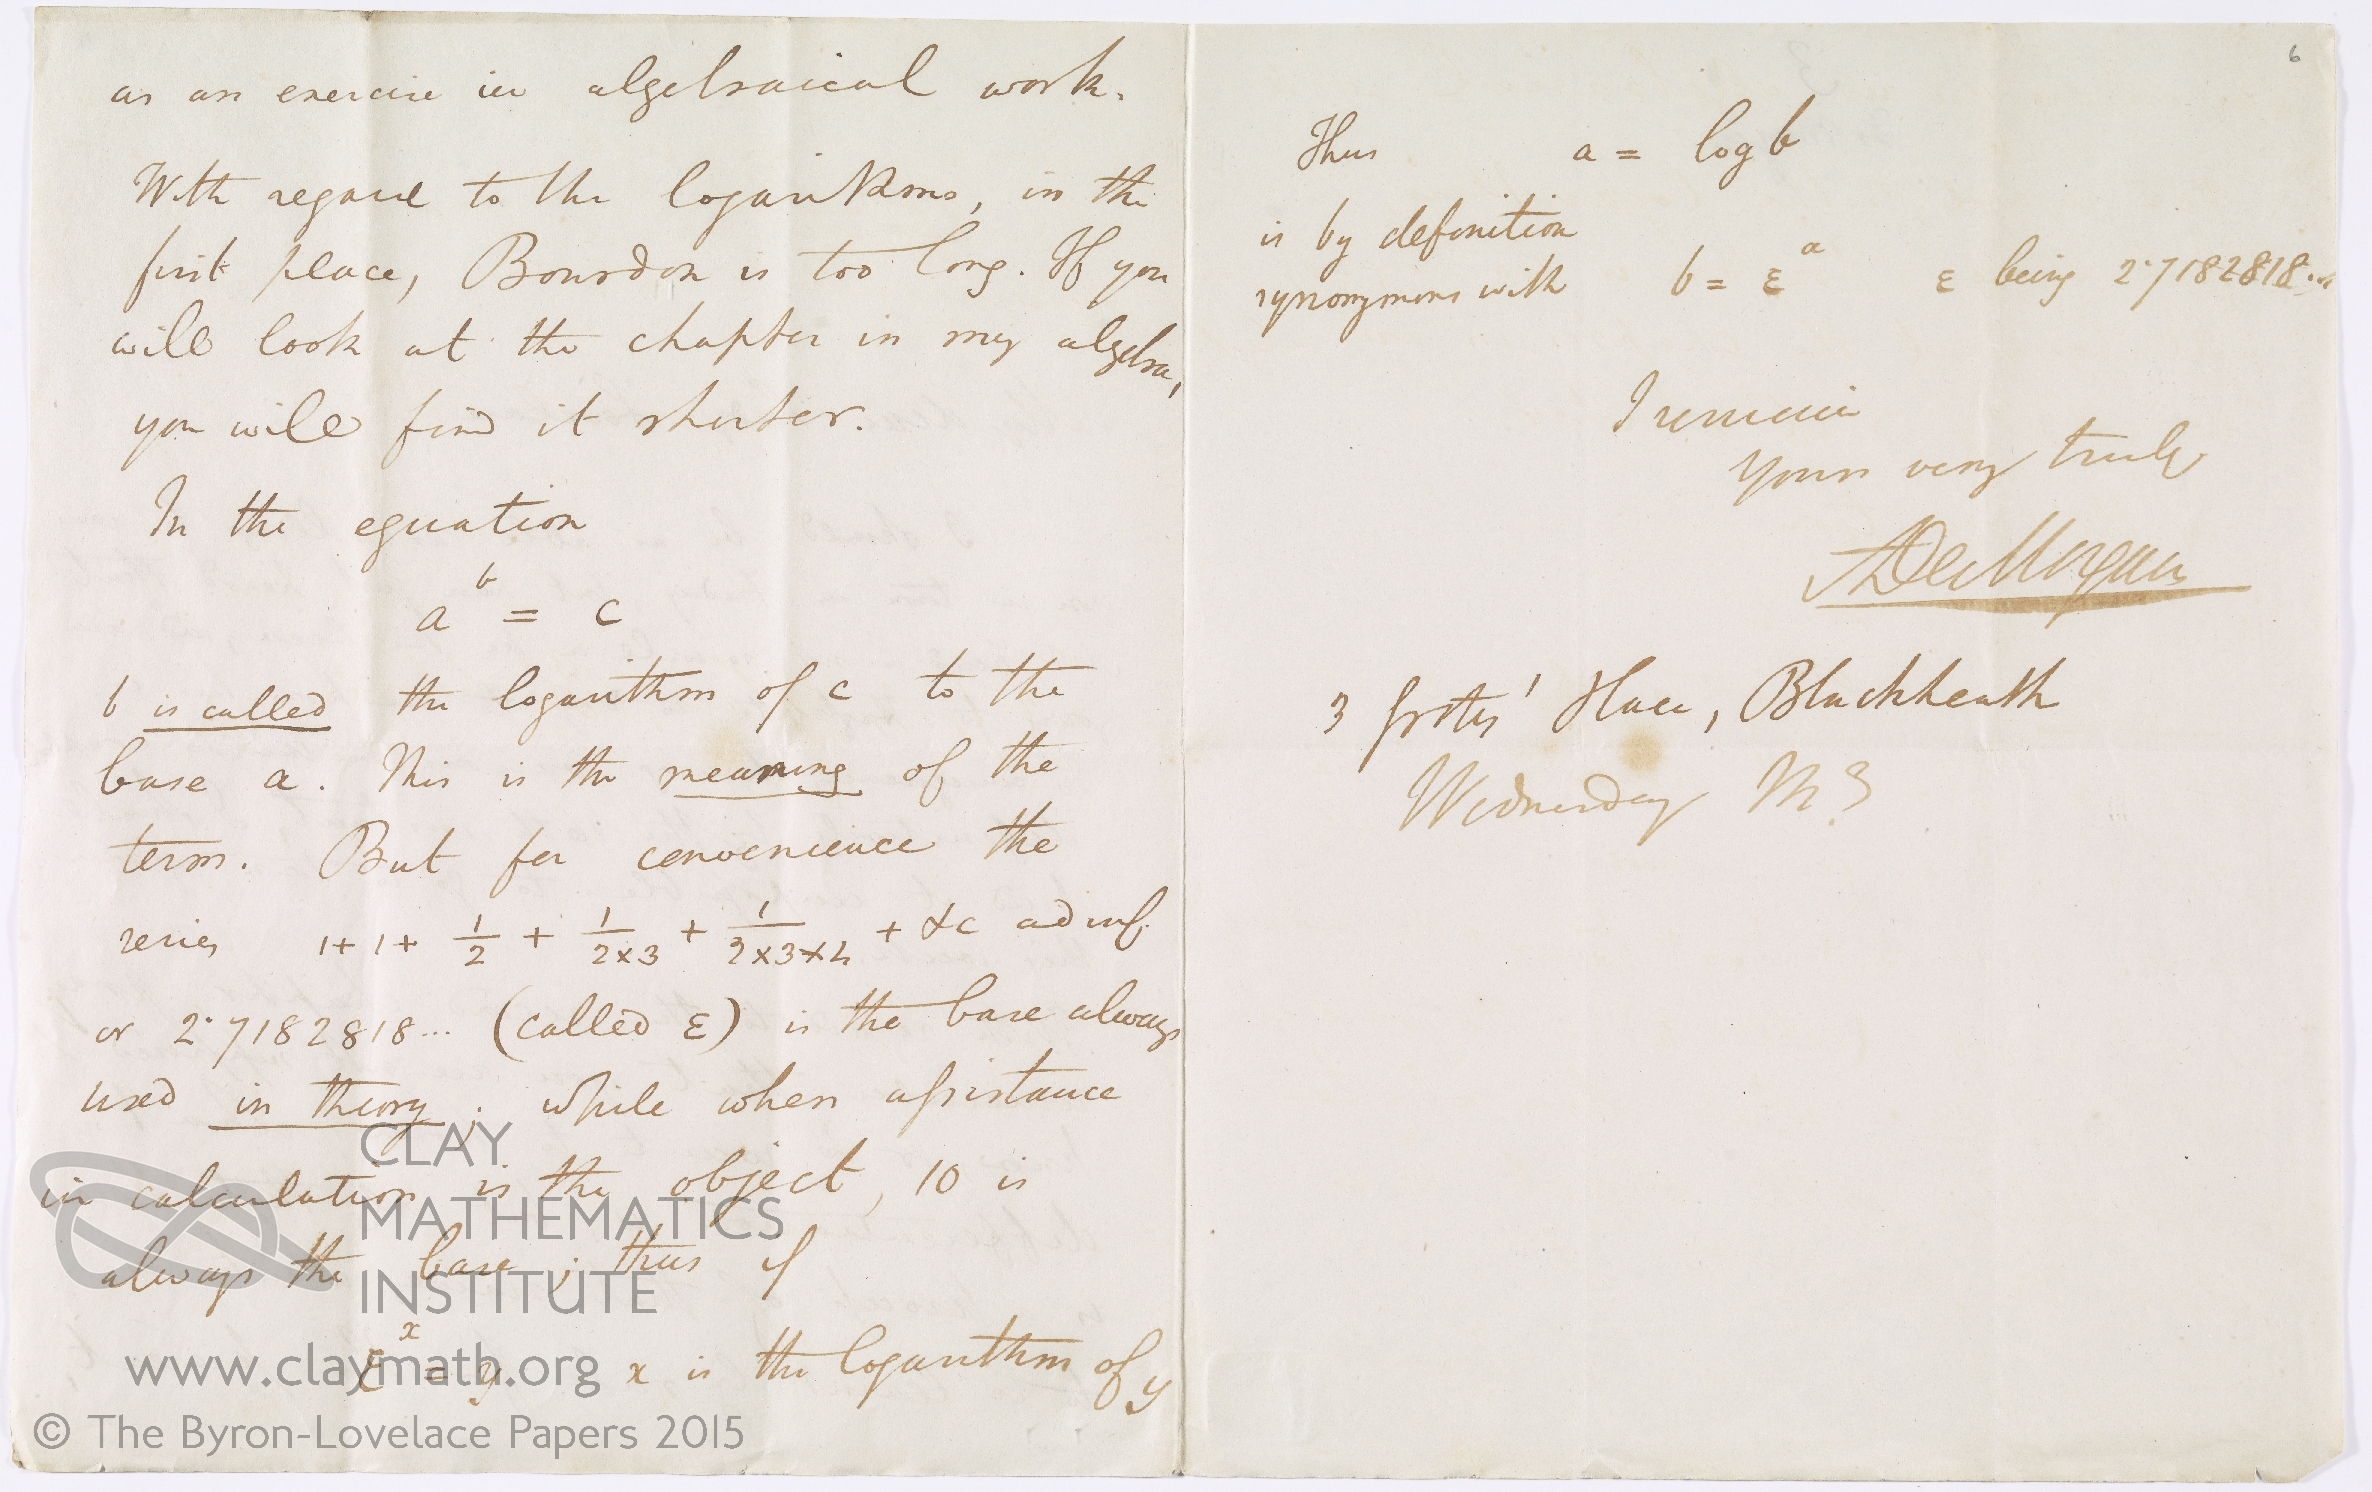 as an exercise in algebraical work.
With regard to the logarithms, in the
first place, Bourdon is too long. If you
will look at the chapter in my algebra,
you will find it shorter.
In the equation
a^b = c
b is called the logarithm of c to the
base a. This is the meaning of the
term. But for convenience the
series 1 + 1 + 1/2 + 1/2×3 + 1/2×3×4 + &c ad inf.
or 2·7182818... (called ε) is the base always
used in theory; while when assistance
in calculation is the object, 10 is
always the base; thus if
ε^x = y x is the logarithm of y
CLAY
MATHEMATICS
INSTITUTE
www.claymath.org
© The Byron-Lovelace Papers 2015
6
Thus a = log b
is by definition
synonymous with b = ε^a ε being 2·7182818...
I remain
Yours very truly
ADeMorgan
3 Grotes' Place, Blackheath
Wednesday